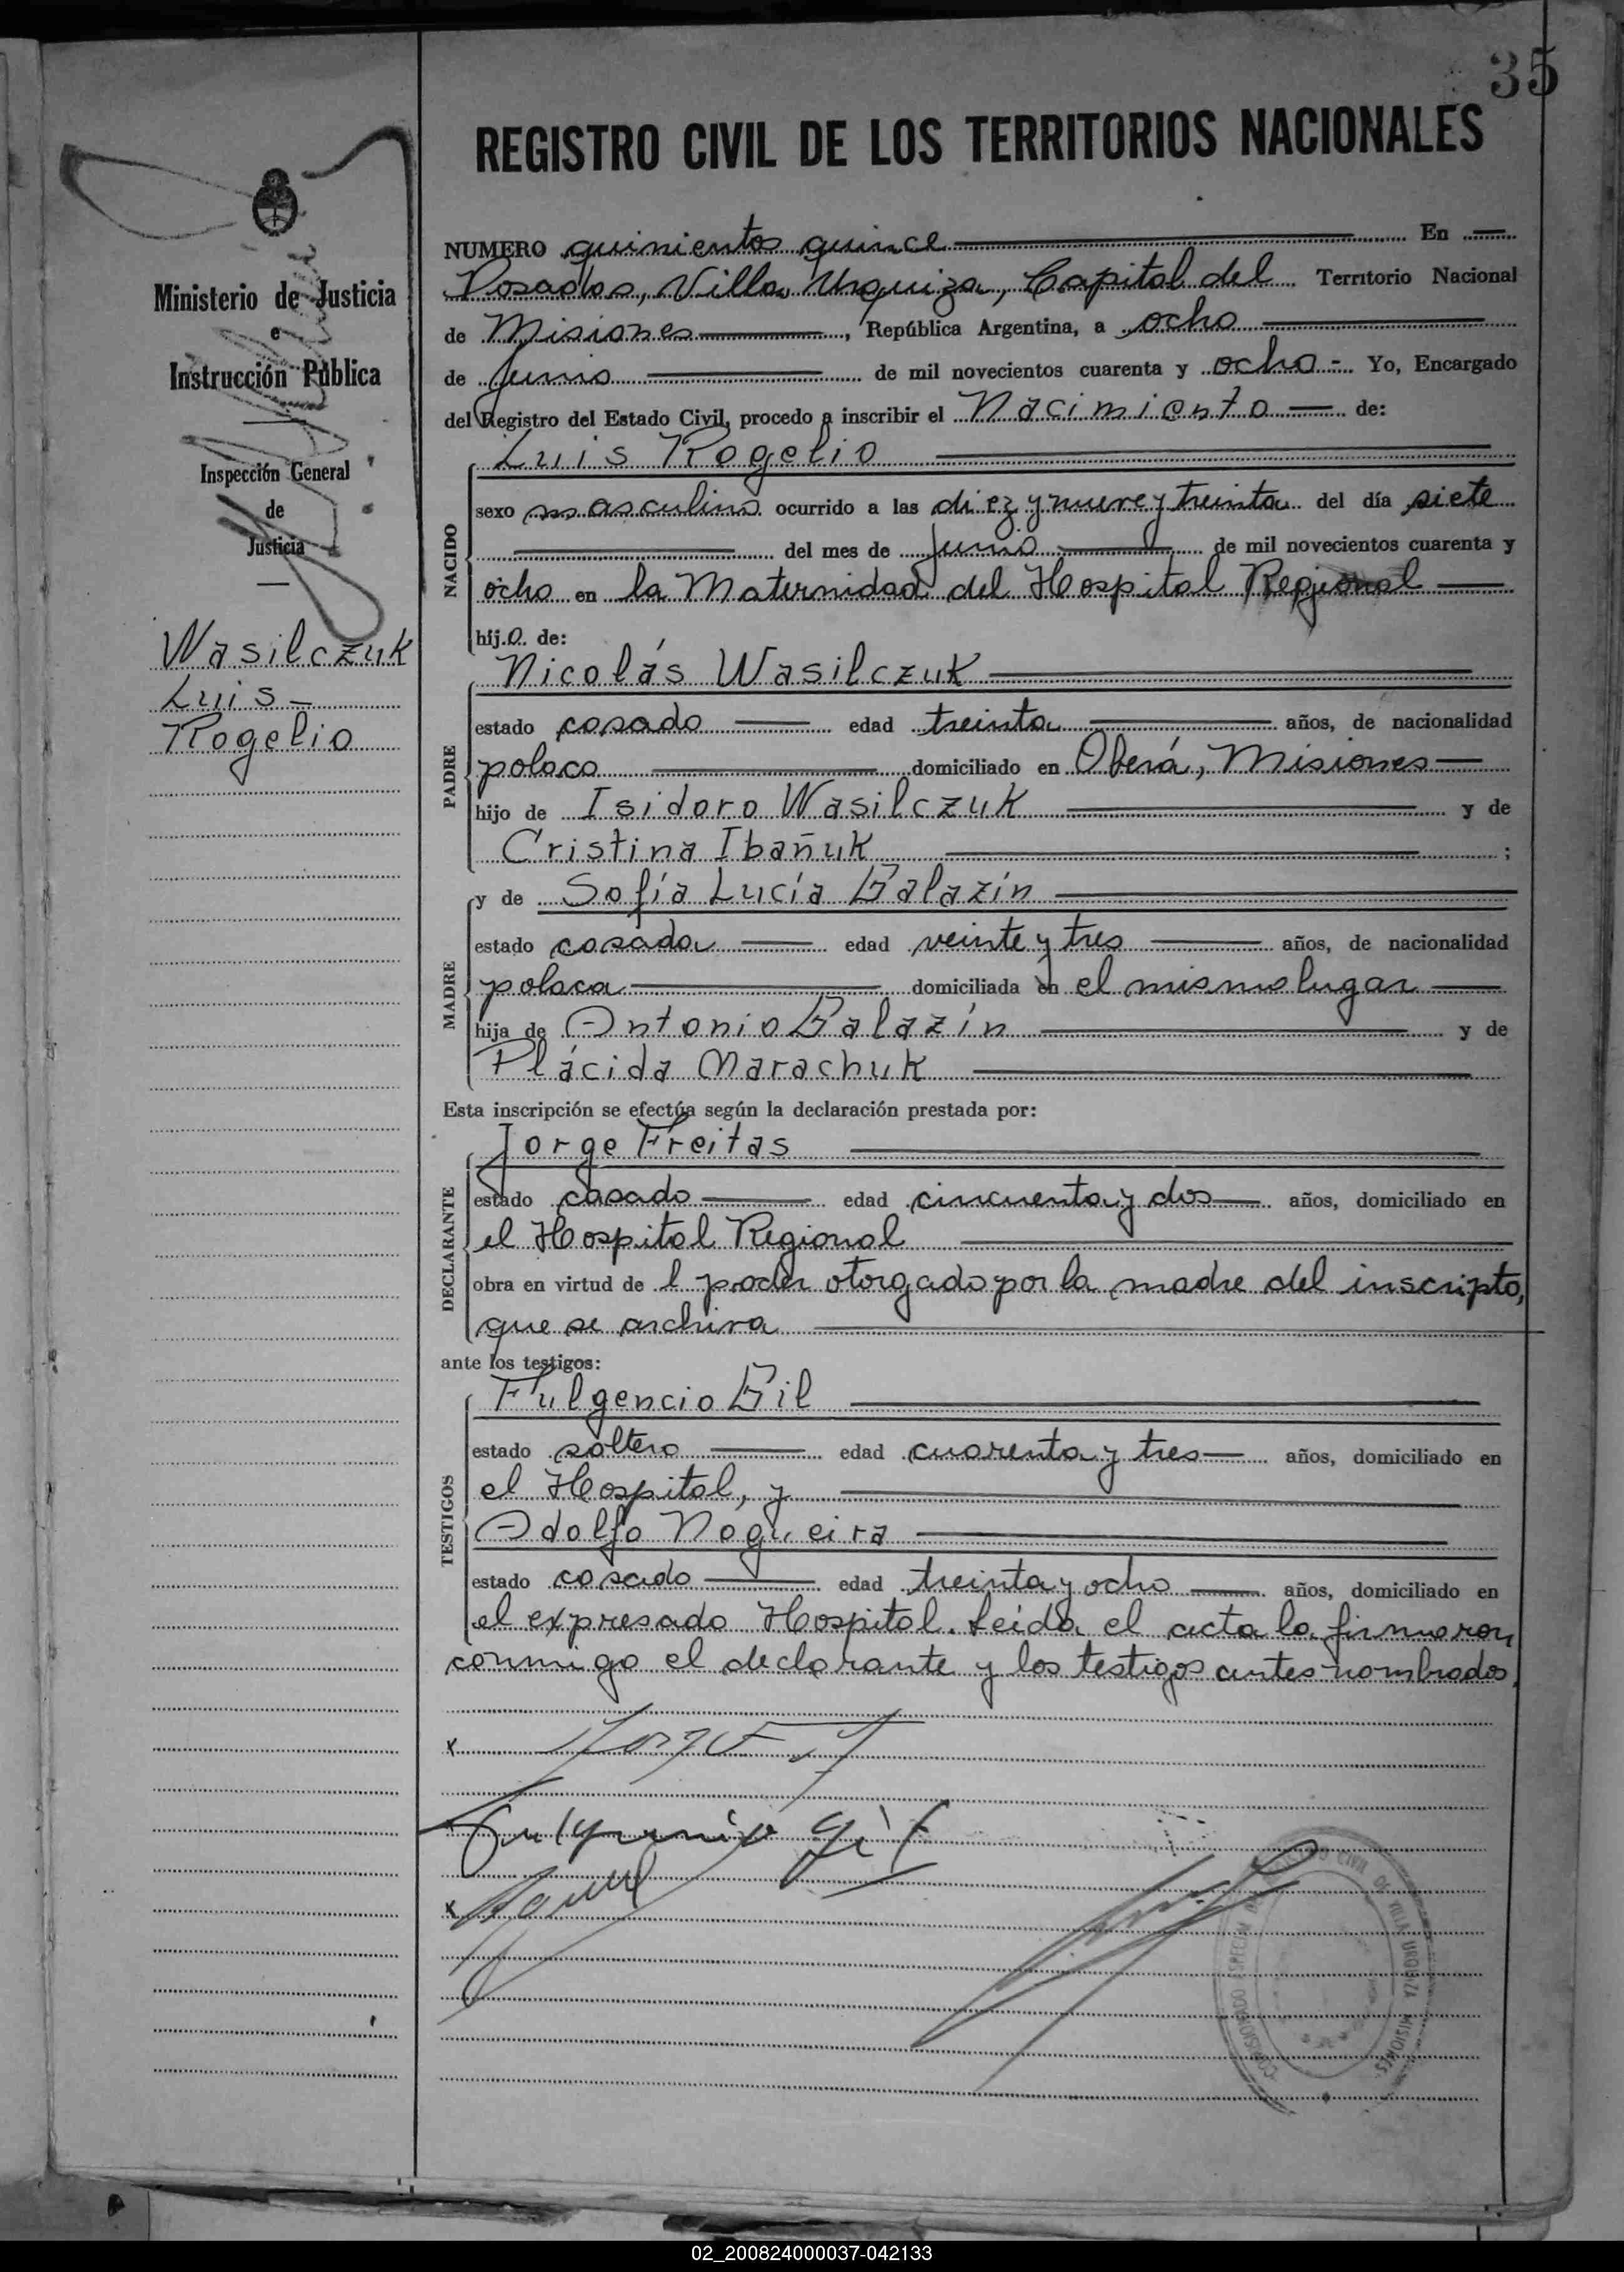 35
REGISTRO CIVIL DE LOS TERRITORIOS NACIONALES
Ministerio de Justicia
e
Instrucción Pública
Inspección General
de
Justicia
Wasilczuk
Luis
Rogelio
NUMERO quinientos quince En
Posadas, Villa Urquiza, Capital del Territorio Nacional
de Misiones, República Argentina, a ocho
de Junio de mil novecientos cuarenta y ocho - Yo, Encargado
del Registro del Estado Civil, procedo a inscribir el Nacimiento de:
NACIDO
Luis Rogelio
sexo masculino ocurrido a las diez y nueve y treinta del día siete
del mes de Junio de mil novecientos cuarenta y
ocho en la Maternidad del Hospital Regional
hijo de:
PADRE
Nicolás Wasilczuk
estado casado edad treinta años, de nacionalidad
polaca domiciliado en Oberá, Misiones
hijo de Isidoro Wasilczuk y de
Cristina Ibañuk ;
MADRE
y de Sofía Lucía Galazín
estado casada edad veinte y tres años, de nacionalidad
polaca domiciliada en el mismo lugar
hija de Antonio Galazín y de
Plácida Marachuk
Esta inscripción se efectúa según la declaración prestada por:
DECLARANTE
Jorge Freitas
estado casado edad cincuenta y dos años, domiciliado en
el Hospital Regional
obra en virtud de l poder otorgado por la madre del inscripto,
que se archiva
ante los testigos:
TESTIGOS
Fulgencio Gil
estado soltero edad cuarenta y tres años, domiciliado en
el Hospital, y
Adolfo Nogueira
estado casado edad treinta y ocho años, domiciliado en
el expresado Hospital. Leída el acta la firmaron
conmigo el declarante y los testigos antes nombrados.
x Jorge F
Fulgencio Gil
x
COMISIONADO ESPECIAL REGISTRO CIVIL DE VILLA URQUIZA MISIONES
02_200824000037-042133